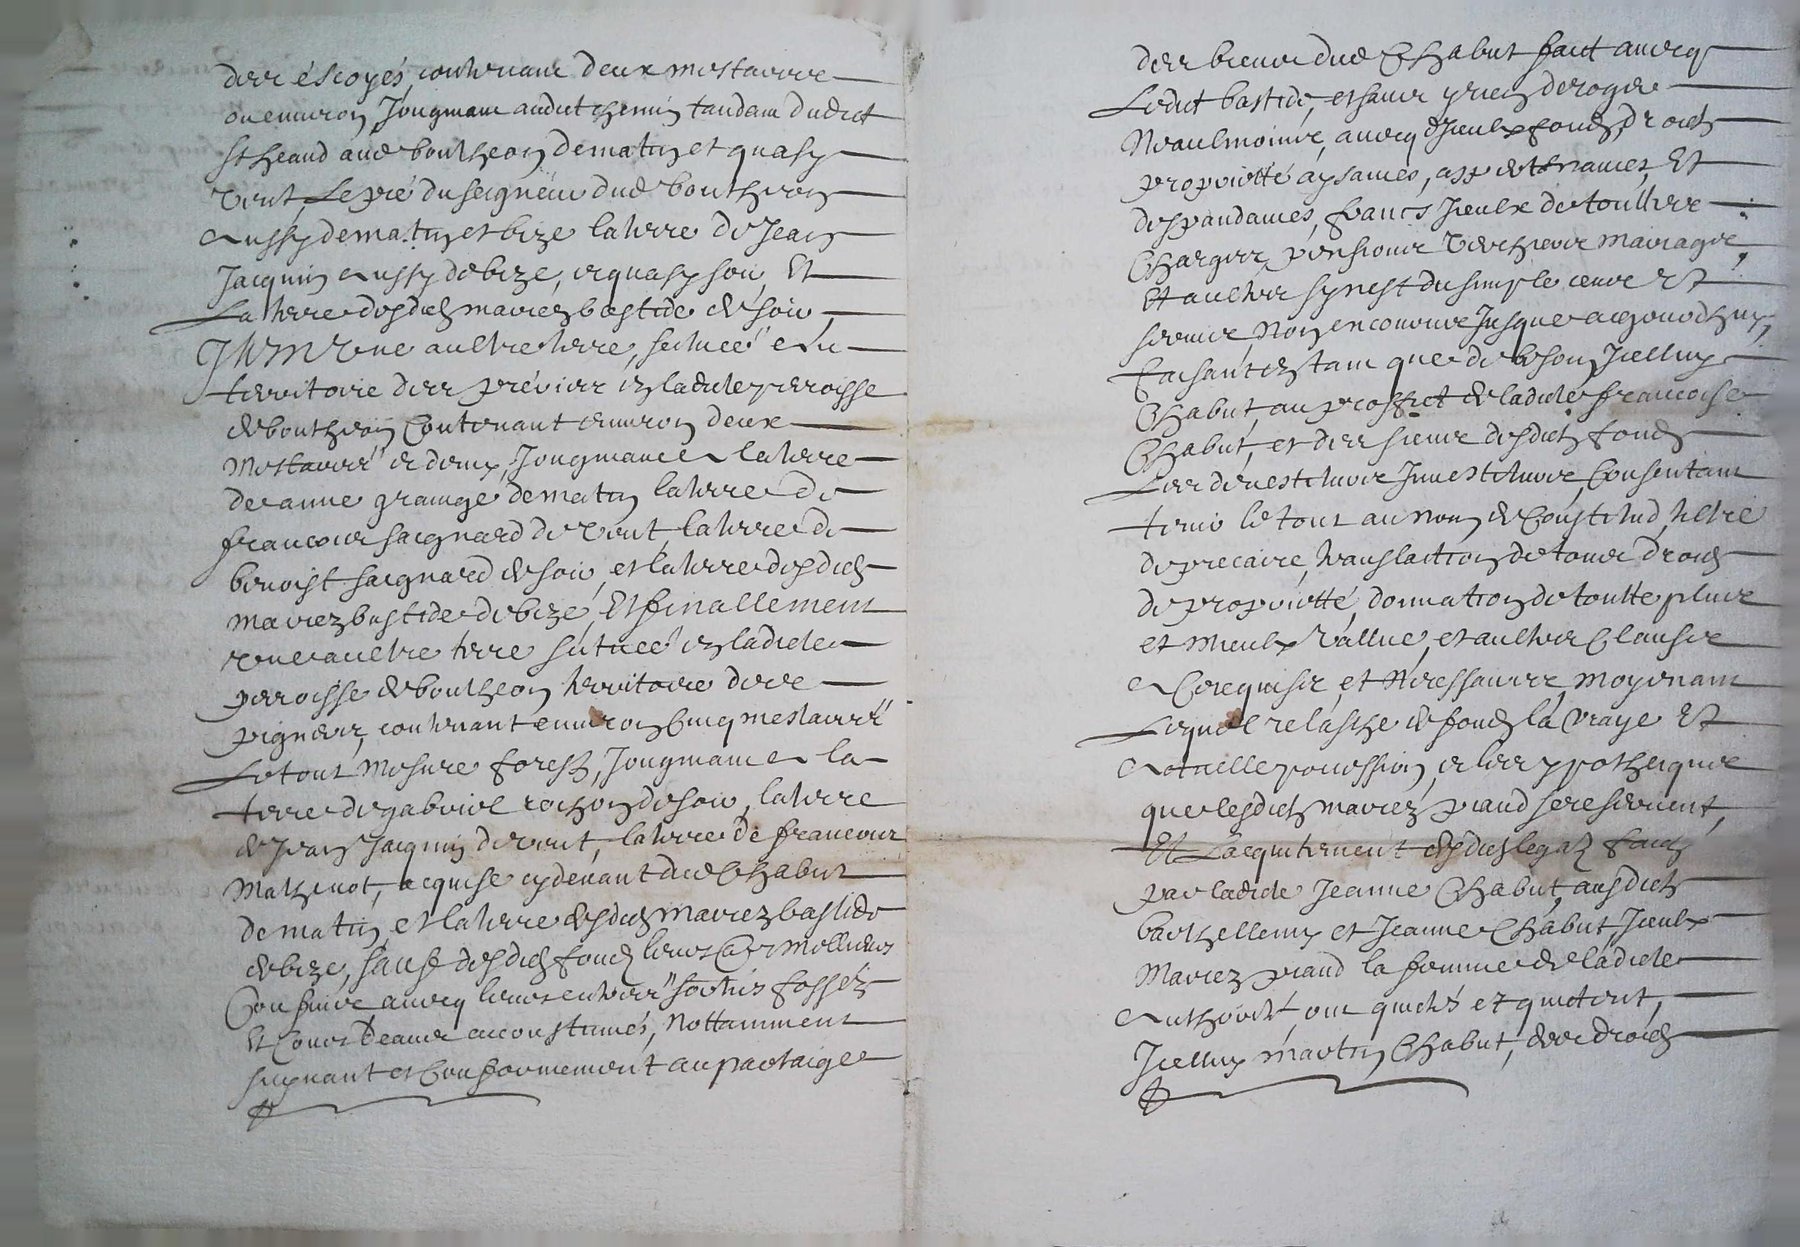 des escoyes, contenant deux mestairees
ou environ, Jougnant audict chemin tandant dudict
St heand aud boutheon de matin et quasy
vent, le pré du seigneur dud bouthéon
aussy de matin et bize la terre de Jean
Jacquin aussy de bize, et quasy soir, Et
La terre desdictz mariez bastide de soir,
Item Une aultre terre, scituee au
territoire des previers en ladicte perroisse
de bouthéon Contenant environ deux
Mestairees et demy, Jougnant a la terre
de anne grange de matin la terre de
francois saignard de vent, la terre de
benoist saignard de soir, et la terre desdictz
mariez bastide de bize, Et finallement
Une aultre terre scituee en ladicte
perroisse de boutheon territoire des
pigniers, contenant environ Cinq mestairees
Le tout Mesure forestz, Jougnant a la
terre de gabriel rochon de soir, la terre
de Jean Jacquin de vent, la terre de francois
Mathenot, acquise cydevant dud Chabut
de matin et la terre desdictz mariez bastide
de bize, sauf desdictz fondz leurs Meilleurs
Confins avecq leurs entrees sorties fossez
Et Cours deaue accoustumés, Nottamment
suyvant et Conformement au partaige
des biens dud Chabut faict avecq
Ledict bastide, et sans y rien deroger
Neaulmoings, avecq Iceulx fondz, droictz
proprietté aysances, appartenances, Et
despandances, francs Iceulx de touttes
Charges, pensions mariages,
Et aultres sy nest du simple cens Et
servis, Non encourus Jusques a aujourdhuy,
faisant en tant que de besoing Icelluy
Chabut, au proffict de ladicte francoise
Chabut, et des siens desdictz fondz
Les devestitures Investitures, Consentant
tenir le tout au nom de Constitud, tiltre
de precaire, translaction de tous droictz
de proprietté, donnation de toutte plus
et Mieulx Vallue, et aultres Clauses
a Ce requises, et Necessaires, moyenant
Lequel relasche de fondz la Vraye Et
actuelle possession, et les ypotheques
que lesdictz mariez piaud se reservent,
Et Lacquitement desdictz legatz faictz
par ladicte Jeanne Chabut, ausdictz
barthellemy et Jeanne Chabut, Iceulx
Mariez piaud la femme de ladicte
authorité, ont quicté et quictent,
Icelluy martin Chabut, des droictz